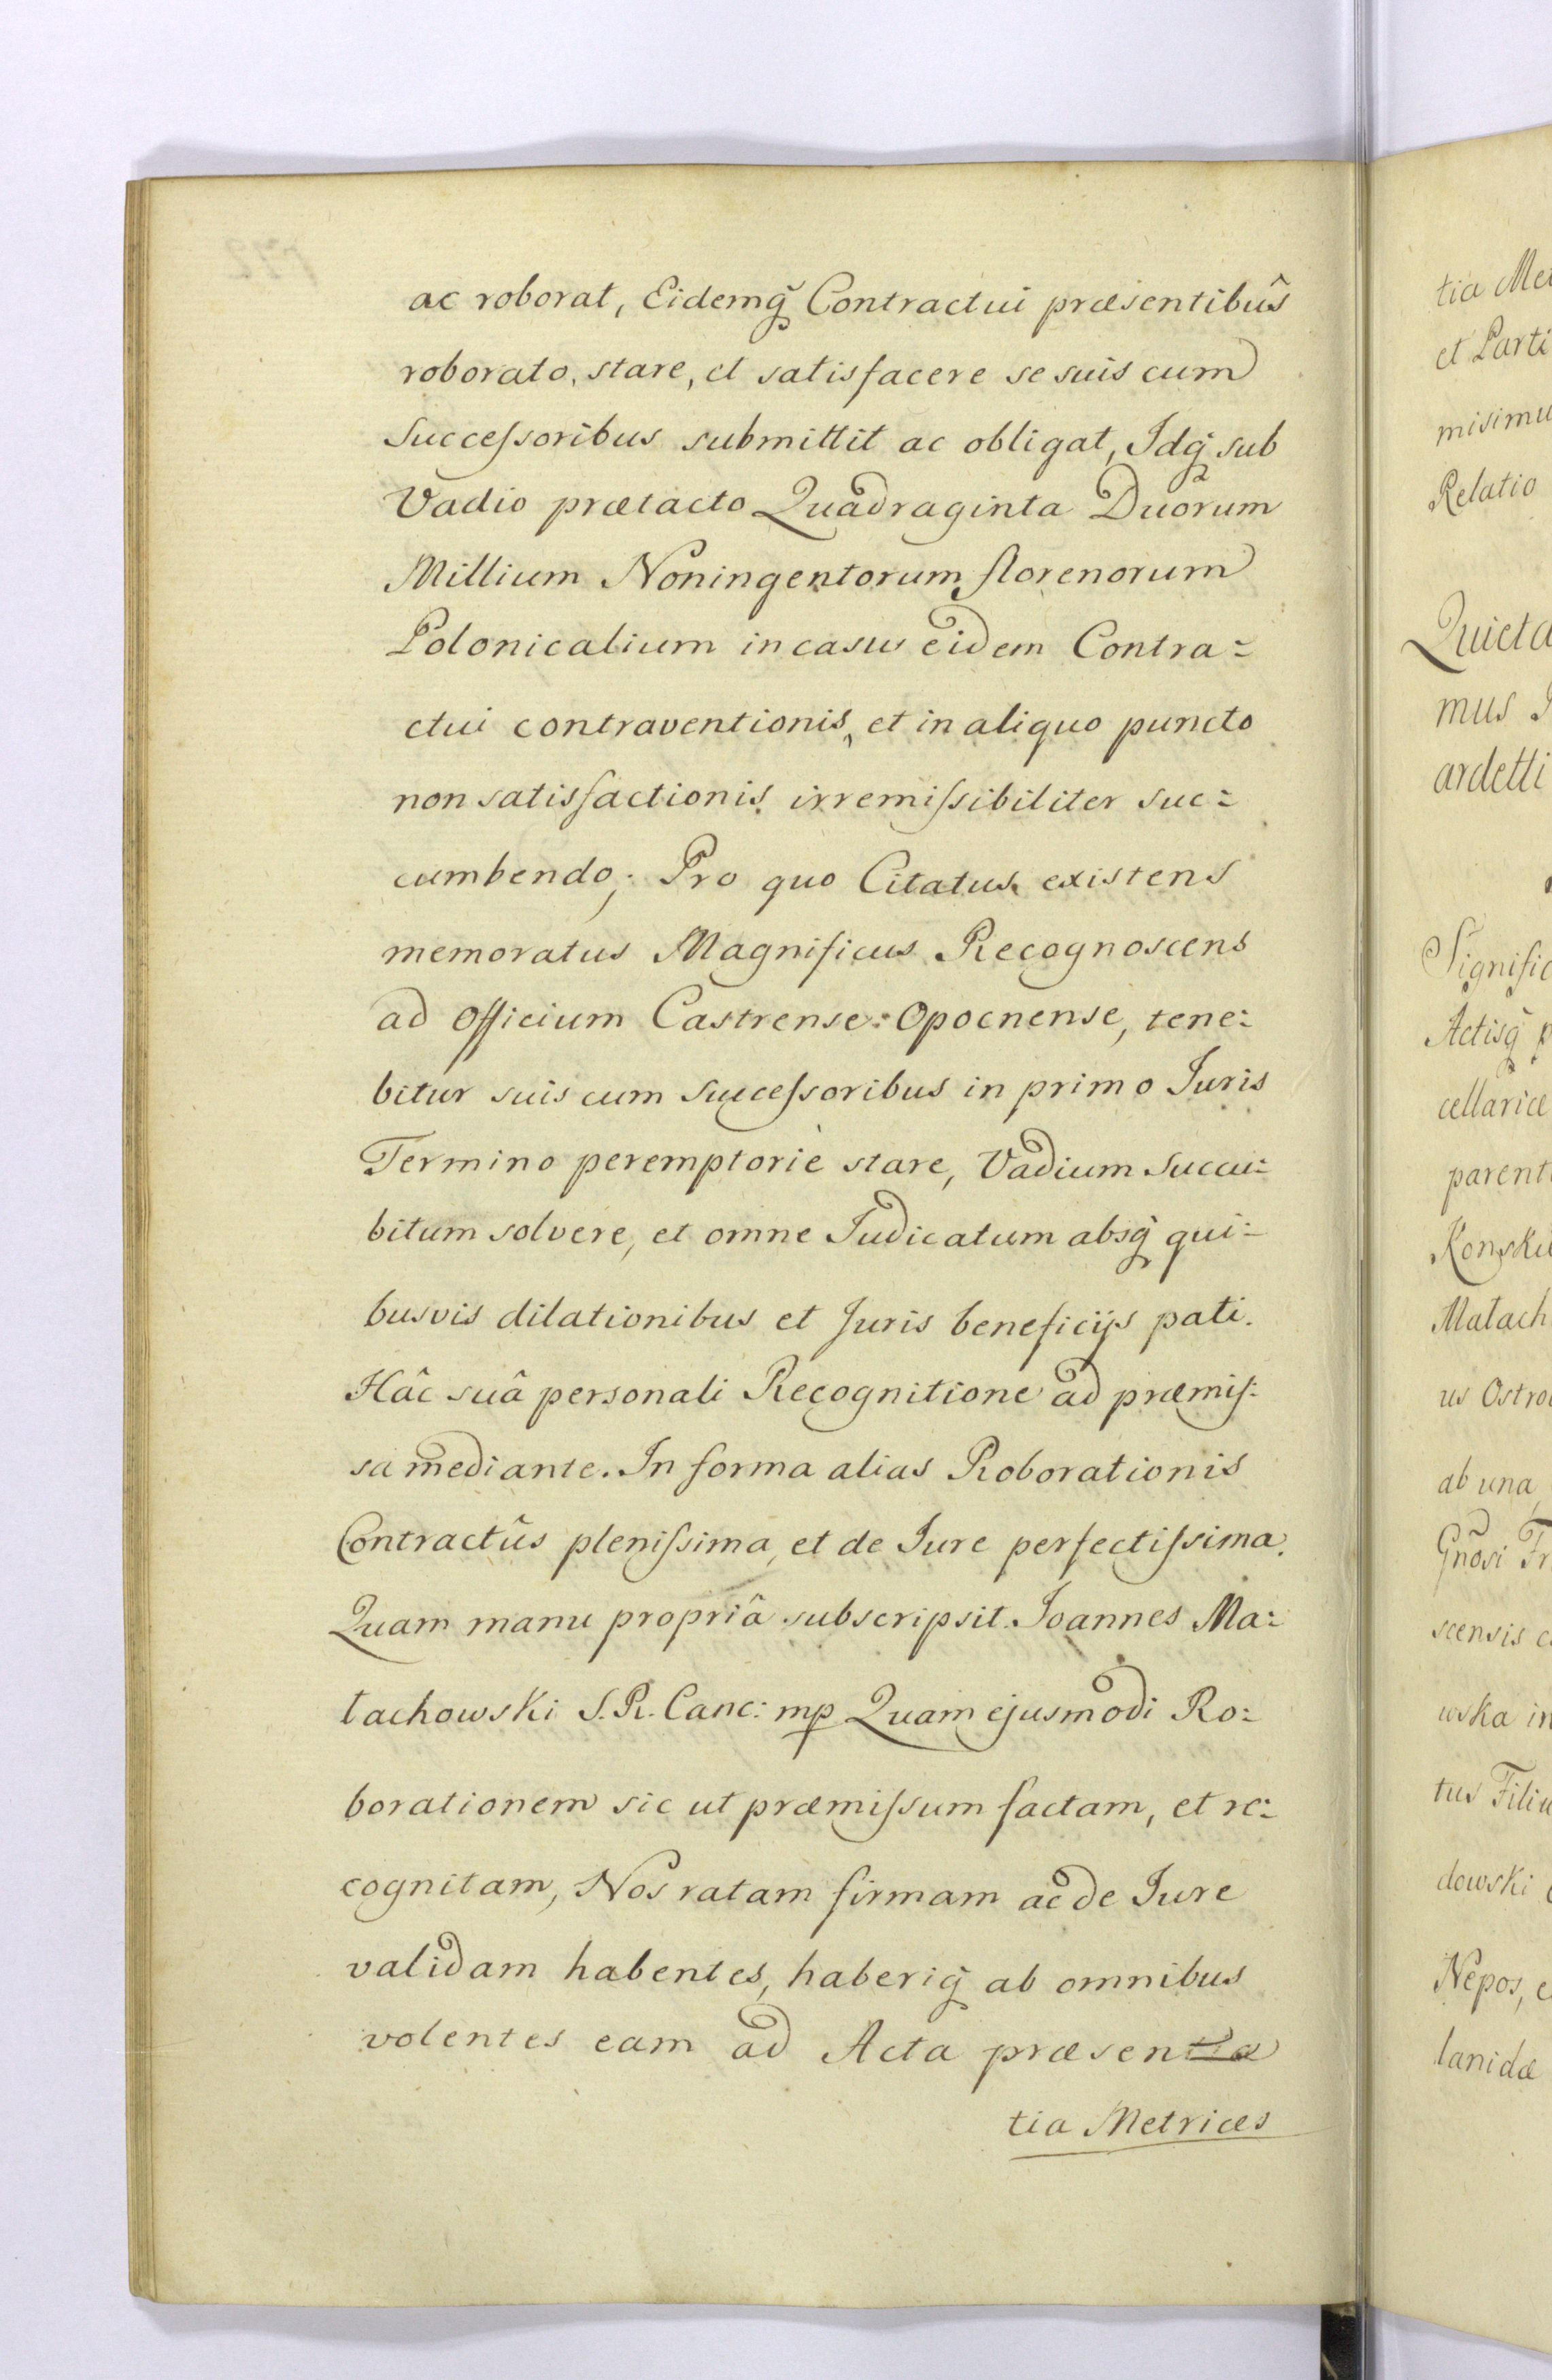 ac roborat, Eidemq̃ Contractui præsentibûs
roborato, stare, et satisfacere se suis cum
Succeſsoribus submittit ac obligat, Idq̃ sub
Vadio prætacto Quadraginta Duorum
Millium Noningentorum florenorum
Polonicalium in casu eidem Contra=
ctui contraventionis, et in aliquo puncto
non satisfactionis irremiſsibiliter suc=
cumbendo; Pro quo Citatus existens
memoratus Magnificus Recognoscens
ad Officium Castrense Opocnense, tene=
bitur suis cum Succeſsoribus in primo Juris
Termino peremptoriè stare, Vadium Succu=
bitum solvere, et omne Judicatum absq̃ qui=
busvis dilationibus et Juris beneficijs pati.
Hâc suâ personali Recognitione ad præmiſ=
sa mediante. In forma alias Roborationis
Contractûs pleniſsima, et de Jure perfectiſsima.
Quam manu propriâ subscripsit. Joannes Ma=
łachowski S. R. Canc: mp Quam ejusmodi Ro=
borationem sic ut præmiſsum factam, et re=
cognitam, Nos ratam firmam ac de Jure
validam habentes, haberiq̃ ab omnibus
volentes eam ad Acta præsentia
tia Metrices
tia Met
et Parti
misimu
Relatio
Quieta
mus
ardetti
Signific
Actisq̃ p
cellariæ
parent
Konski
Małach
us Ostro
ab una
Gnosi Fr
scensis c
wska in
tus Filiu
dowski
Nepos, e
lanidæ